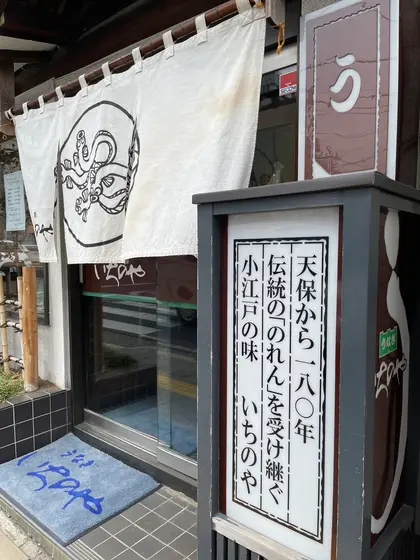 う
SECOM
いちのや
天保から一八〇年
伝統の「のれん」を受け継ぐ
小江戸の味　いちのや
うなぎ
いちのや
うなぎ
いちのや